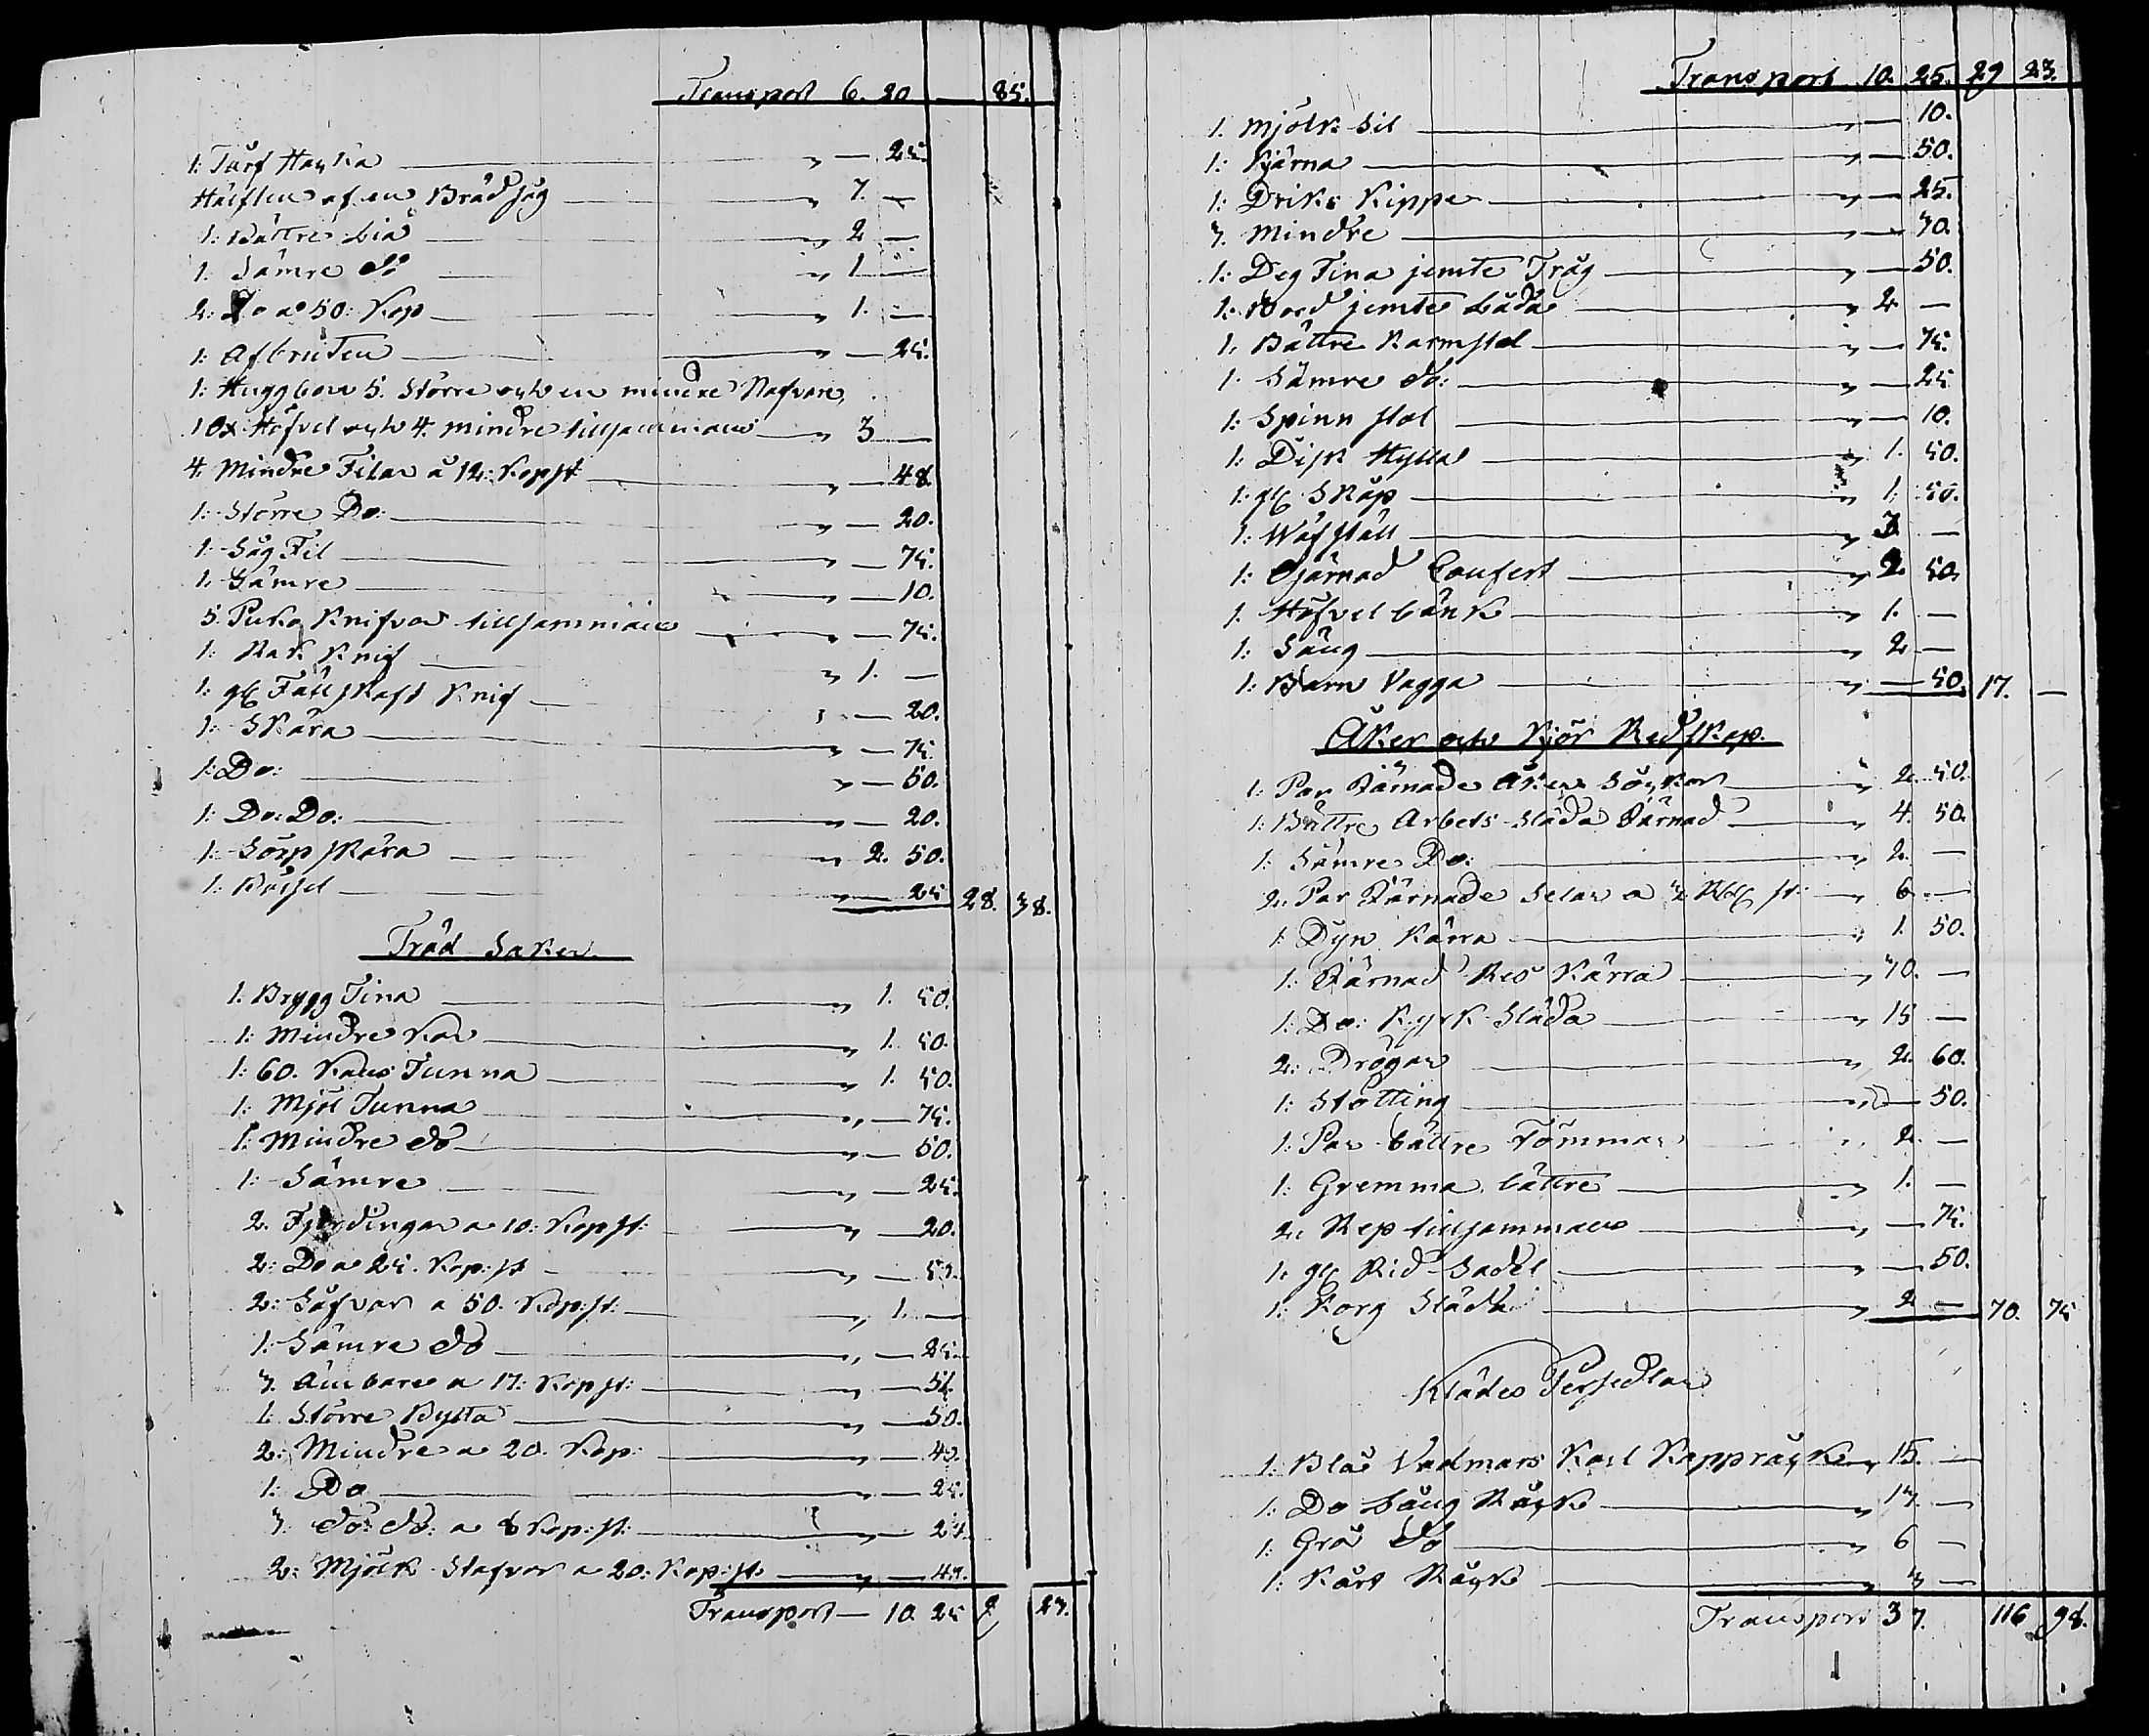 Transport 6. 20 — 85.
1: Turf Hacka — „ — 25.
Hälften af en Brädsåg — „ 7. —
1: Bättre Lia — „ 2 —
1: Sämre do — „ 1 —
2: Do a 50: Kop — „ 1. —
1: Afbruten — „ — 25.
1: Huggbow 5. Större och en mindre Nafvare,
1 Ox Höfvel och 4. mindre tillsammans — „ 3 —
4. Mindre Filar a 12: Kop st — „ — 48.
1: Större Do: — „ — 20.
1: Såg Fil — „ — 75.
1. Sämre — „ — 10.
5. Puko Knifvar tillsammans — „ — 75.
1: Rak Knif — „ 1. —
1: gl Fällskaft Knif — „ — 20.
1: Skära — „ — 75.
1: Do: — „ — 50.
1: Do: Do: — „ — 20.
1: Sörpskära — „ 2. 50.
1: Bössel — „ — 25 28. 38.
Träd Saker.
1. Brygg Tina — „ 1. 50.
1: Mindre Kar — „ 1. 50.
1: 60. Kans Tunna — „ 1. 50.
1: Mjöl Tunna — „ — 75.
1: Mindre do — „ — 50.
1: Sämre — „ — 25.
2. Fjerdingar a 10: Kop st: — „ — 20.
2: Do a 25. Kop: st — „ — 50.
2: Såfvar a 50. Kop: st: — „ 1. —
1: Sämre do — „ — 25.
3. Ämbare a 17: Kop st: — „ — 51.
1: Större Bytta — „ — 50.
2: Mindre a 20. Kop: — „ — 40.
1: Do — „ — 25.
3: do: do: a 8 Kop: st: — „ — 24.
2: Mjölk Stafvar a 20: Kop: st: — „ — 40.
Transport — 10. 25 29 23.
Transport 10. 25. 29 23.
1. Mjölk Sil — „ — 10.
1: Kjärna — „ — 50.
1: Driks Kippe — „ — 25.
3. Mindre — „ — 30.
1: Deg Tina jemte Tråg — „ — 50.
1: Bord jemte Låda — „ 2 —
1. Bättre Karmstol — „ — 75.
1. Sämre do: — „ — 25
1: Spinn stol — „ — 10.
1: Disk Hylla — „ 1. 50.
1: gl Skåp — „ 1. 50.
1: Wäfställ — „ 3 —
1: Gjärnad Coufert — „ 2. 50.
1. Höfvelbänk — „ 1. —
1: Säng — „ 2 —
1: Barn Vagga — „ — 50. 17. —
Åker och Kjör Redskap.
1: Par Järnade Åker — „ 2. 50.
1: Bättre Arbets Släda Järnad — „ 4. 50.
1: Sämre Do: — „ 2. —
2. Par Järnade Selar a 3 st: — „ 6 —
1: Dyn Kärra — „ 1. 50.
1: Järnad Res Kärra — „ 30. —
1: Do: Kyrk Släda — „ 15 —
2: Drögar — „ 2. 60.
1: Stötting — „ — 50.
1: Par bättre Tömmar „ 2. —
1: Gremma bättre — „ 1. —
2. Rep tillsammans — „ — 75.
1. gl Rid Sadel — — 50.
1: Korg Släda — „ 2 — 70. 75
Klädes Persedlar
1: Blå Vadmars Karl Kappråck „ 15. —
1: Do Lång Råck — „ 13. —
1: Grå do — „ 6 —
1: Kort Råck — „ 3 —
Transport 37. 116 98.